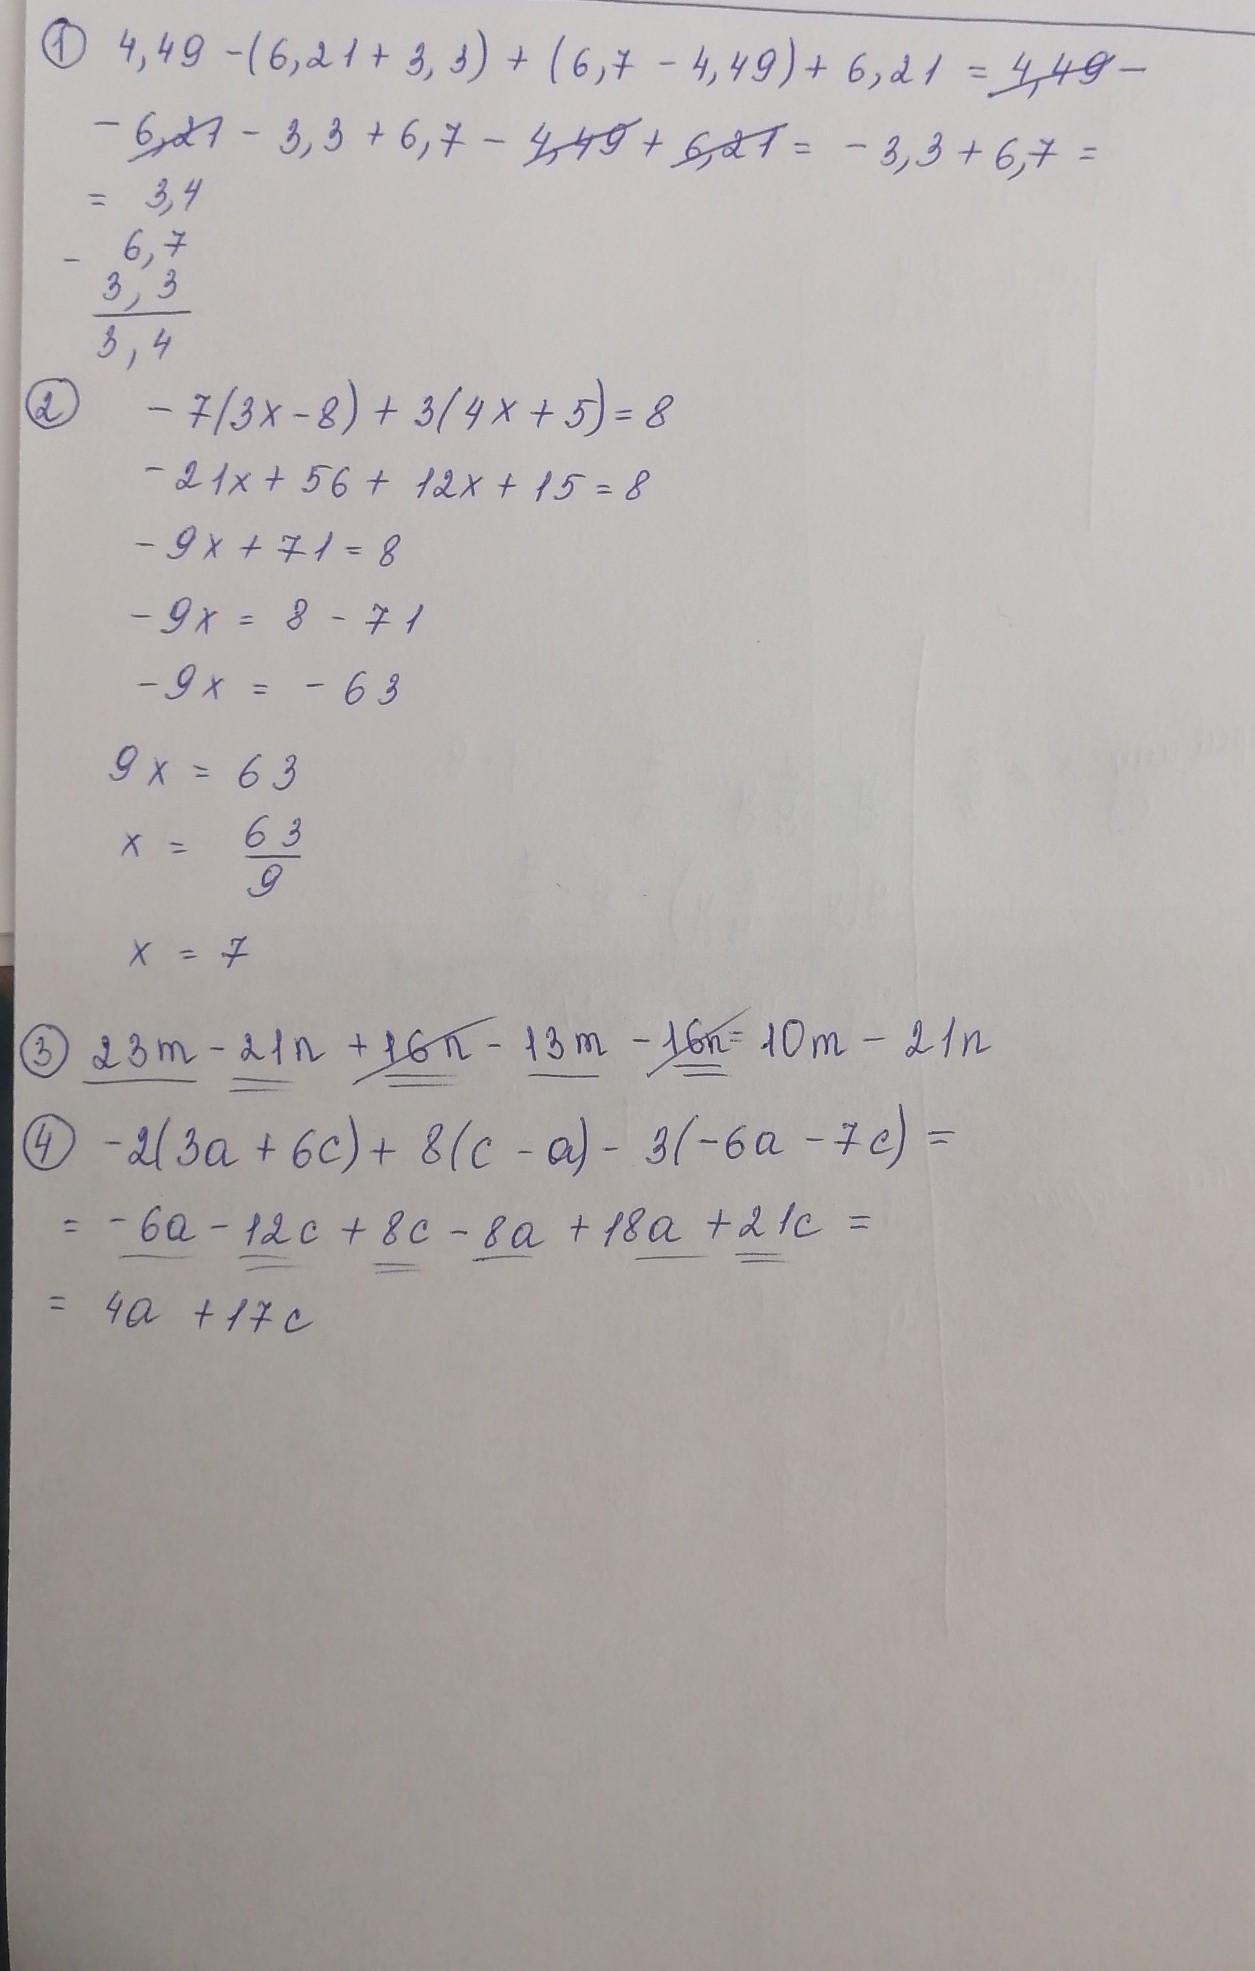 ① 4,49 - (6,21 + 3,3) + (6,7 - 4,49) + 6,21 = 4,49 -
- 6,21 - 3,3 + 6,7 - 4,49 + 6,21 = - 3,3 + 6,7 =
= 3,4
- 6,7
3,3
3,4
② - 7(3x - 8) + 3(4x + 5) = 8
- 21x + 56 + 12x + 15 = 8
- 9x + 71 = 8
- 9x = 8 - 71
- 9x = - 63
9x = 63
x = 63/9
x = 7
③ 23m - 21n + 16n - 13m - 16n = 10m - 21n
④ - 2(3a + 6c) + 8(c - a) - 3(-6a - 7c) =
= - 6a - 12c + 8c - 8a + 18a + 21c =
= 4a + 17c